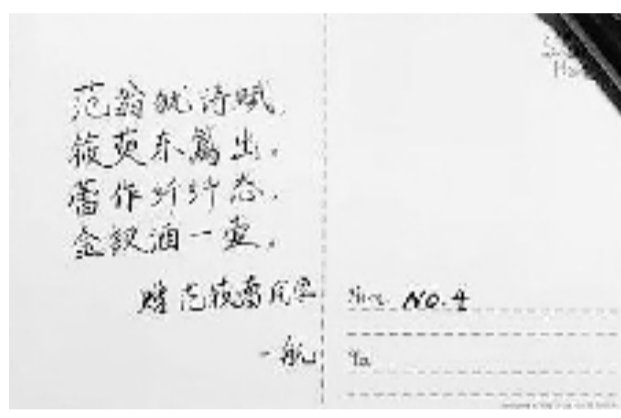 范翁犹诗赋,
筱英东篱出。
蕾作纤纤态,
金钗酒一壶。
赠范筱蕾同学
一航
NO.4